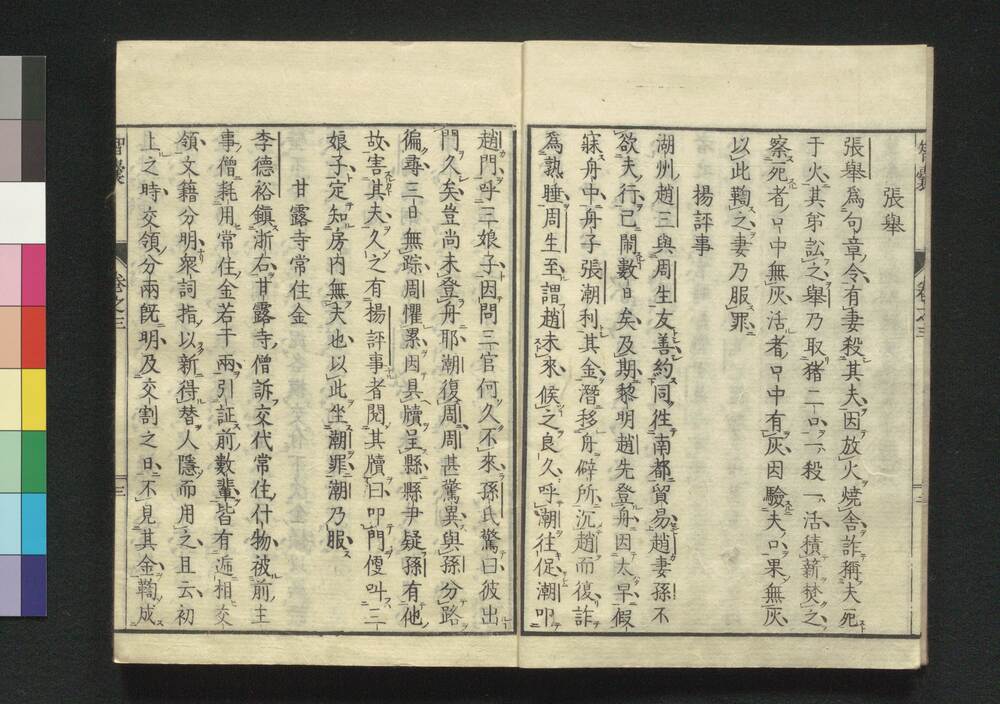 張舉
張舉爲句章令有妻殺其夫因放火燒舍詐稱夫死
于火其弟訟之舉乃取猪二口一殺一活積薪焚之
察死者口中無灰活者口中有灰因驗夫口果無灰
以此鞫之妻乃服罪
揚評事
湖州趙三與周生友善約同徃南都貿易趙妻孫不
欲夫行已鬧數日矣及期黎明趙先登舟因太早假
寐舟中舟子張潮利其金潛移舟僻所沉趙而復詐
爲熟睡周生至謂趙未來候之良久呼潮徃促潮叩
趙門呼三娘子因問三官何久不來孫氏驚曰彼出
門久矣豈尚未登舟耶潮復周周甚驚異與孫分路
徧尋三日無踪周懼累因具牘呈縣縣尹疑孫有他
故害其夫久之有揚評事者閱其牘曰叩門便呌三
娘子定知房内無夫也以此坐潮罪潮乃服
甘露寺常住金
李德裕鎭浙右甘露寺僧訴交代常住什物被前主
事僧耗用常住金若干兩引証前數輩皆有逓相交
領文籍分明衆詞指以新得替人隱而用之且云初
上之時交領分兩旣明及交割之日不見其金鞫成
智囊
卷之三
三